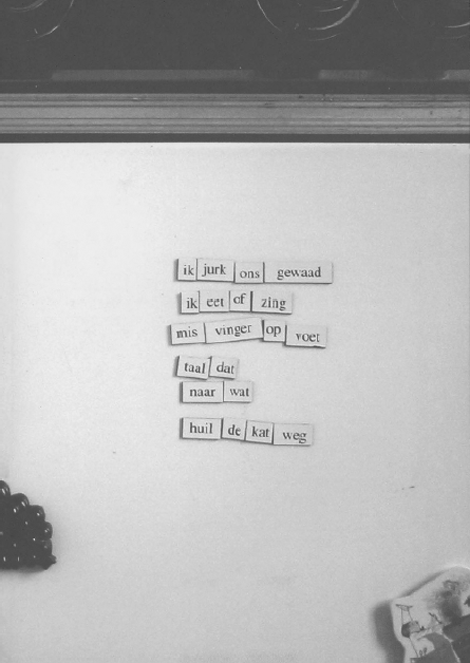 ik jurk ons gewaad
ik eet of zing
mis vinger op voet
taal dat
naar wat
huil de kat weg